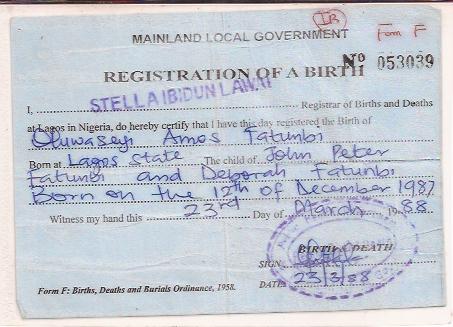 IR
Form F
MAINLAND LOCAL GOVERNMENT
Nº 053039
REGISTRATION OF A BIRTH
I, STELLA IBIDUN LAWAL Registrar of Births and Deaths
at Lagos in Nigeria, do hereby certify that I have this day registered the Birth of
Oluwaseyi Amos Fatunbi
Born at Lagos State The child of John Peter
Fatunbi and Deborah Fatunbi
Born on the 12th of December 1987
Witness my hand this 23rd Day of March 1988
BIRTH DEATH
SIGN
DATE 23/3/88
Form F: Births, Deaths and Burials Ordinance, 1958.